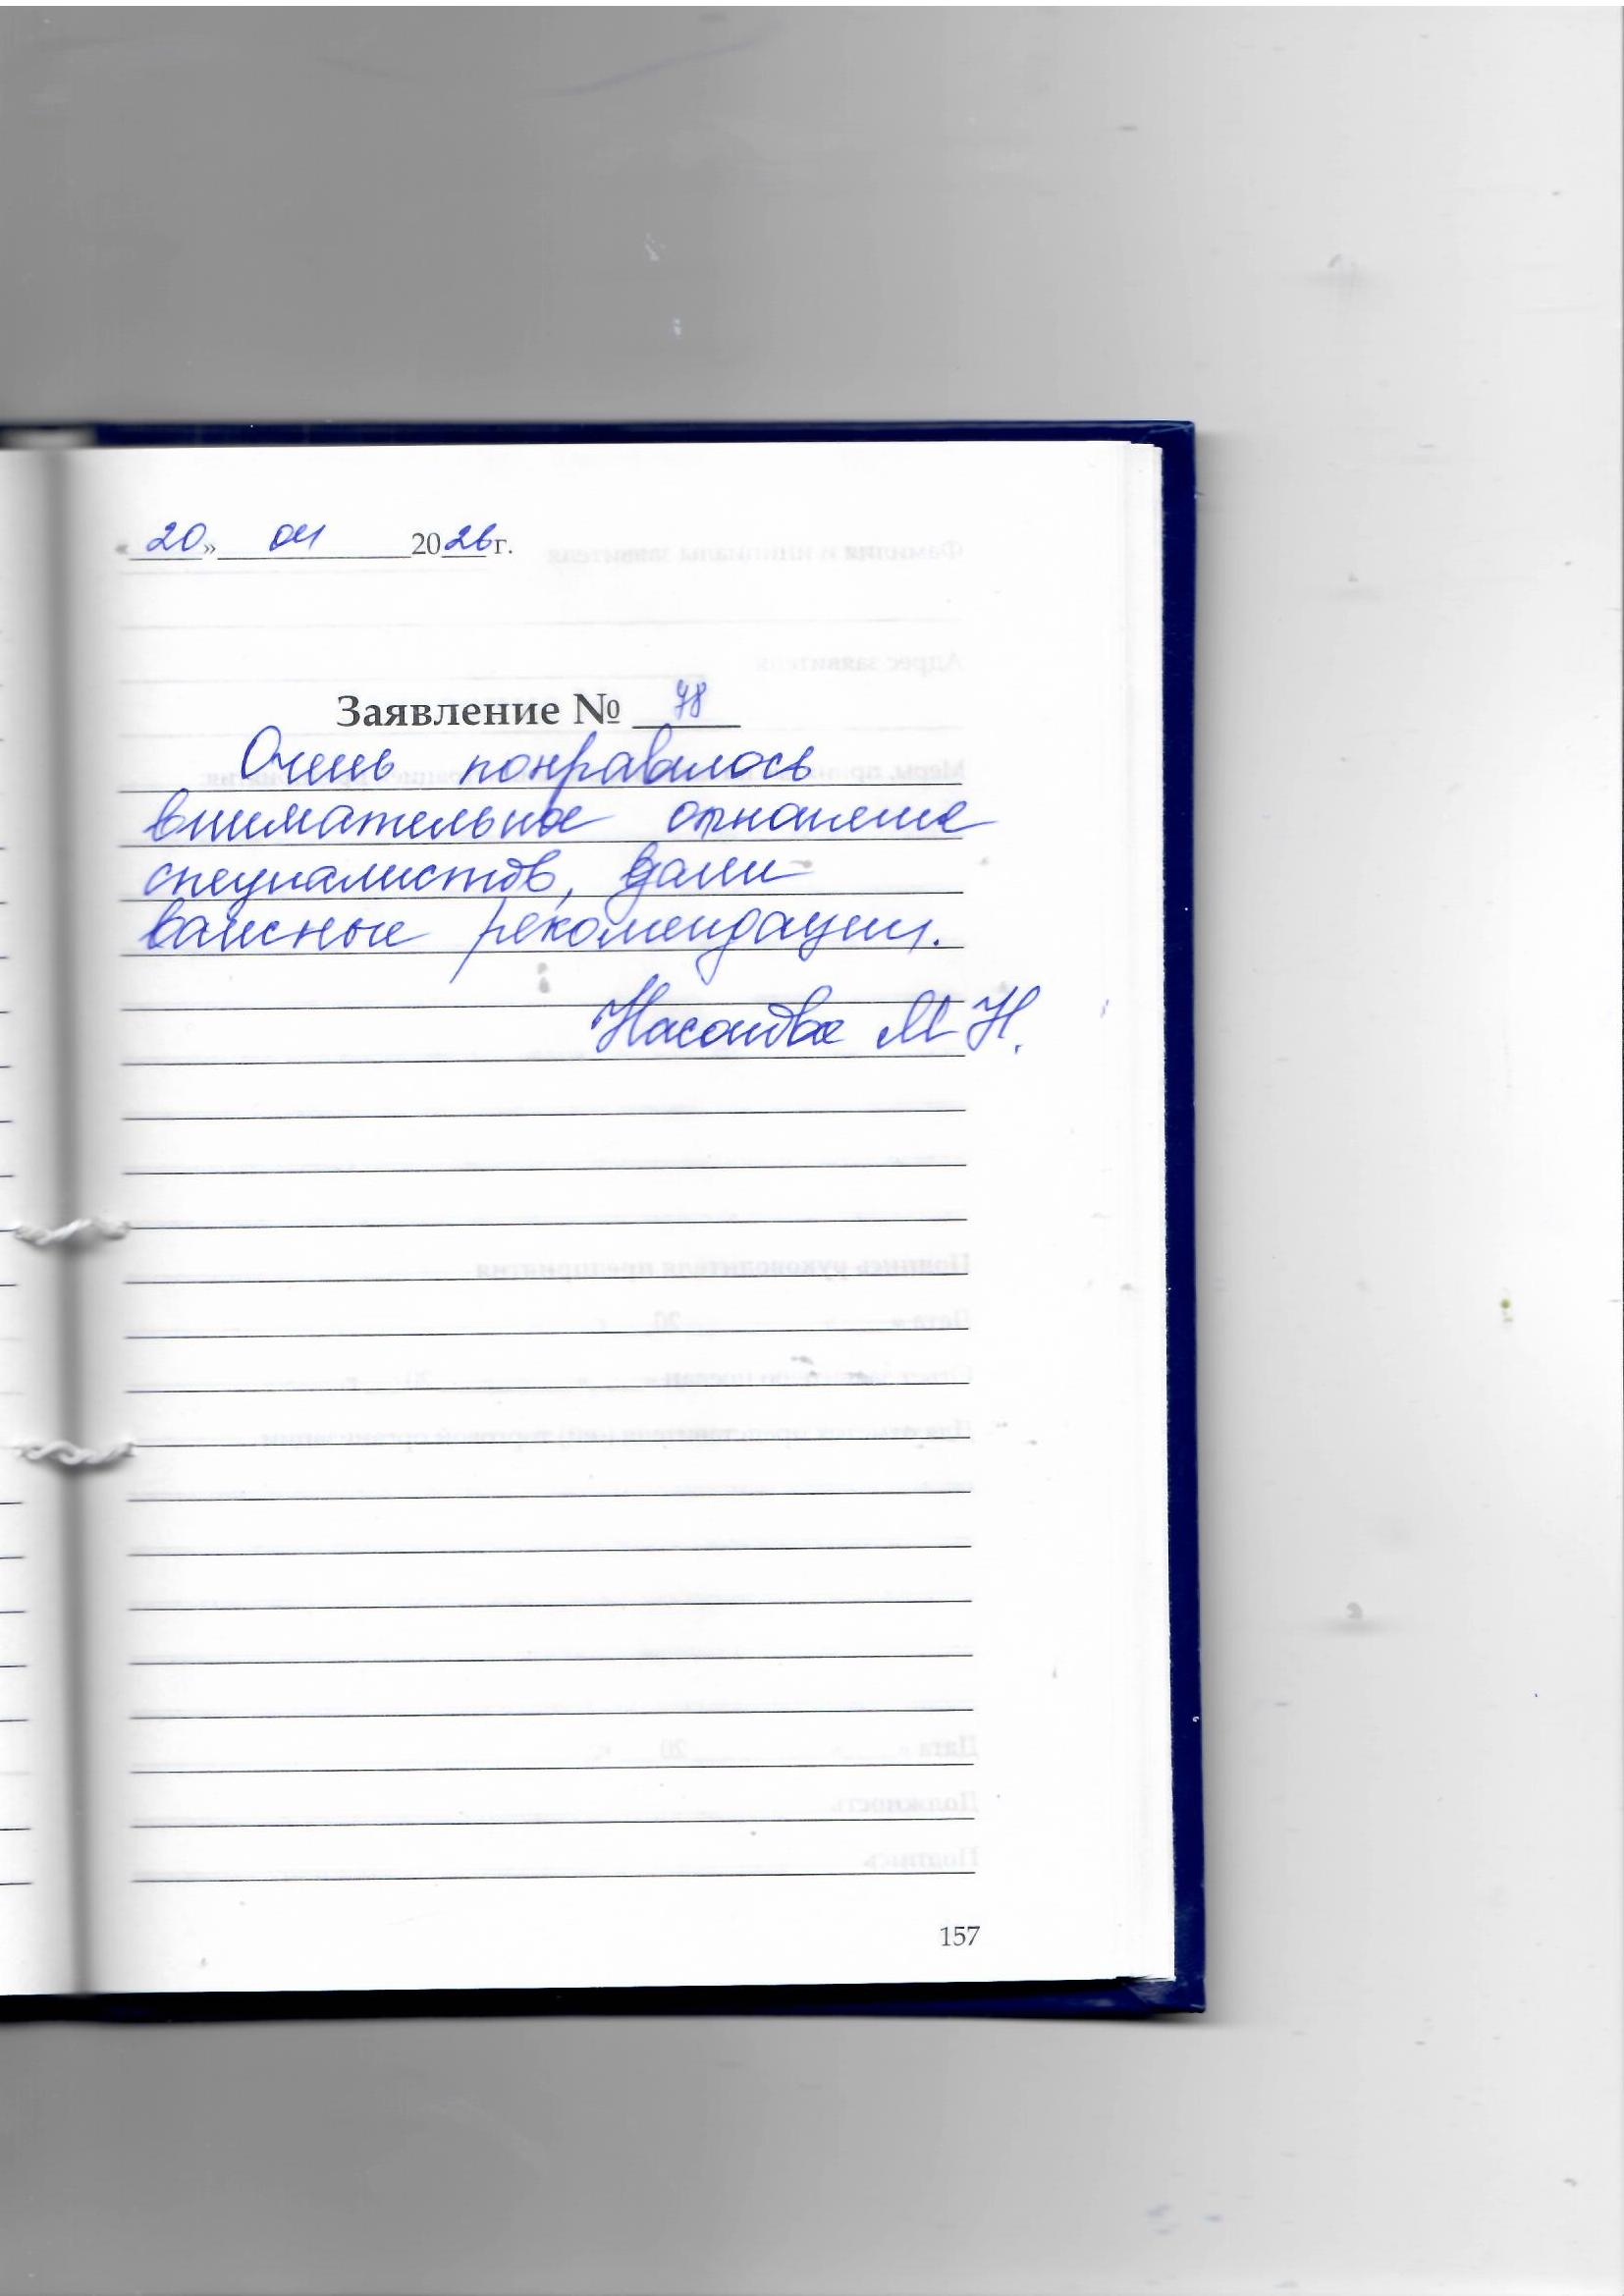 « 20 » 04 2026 г.
Заявление № 78
Очень понравилось
внимательное отношение
специалистов, дали
важные рекомендации.
М Н.
157